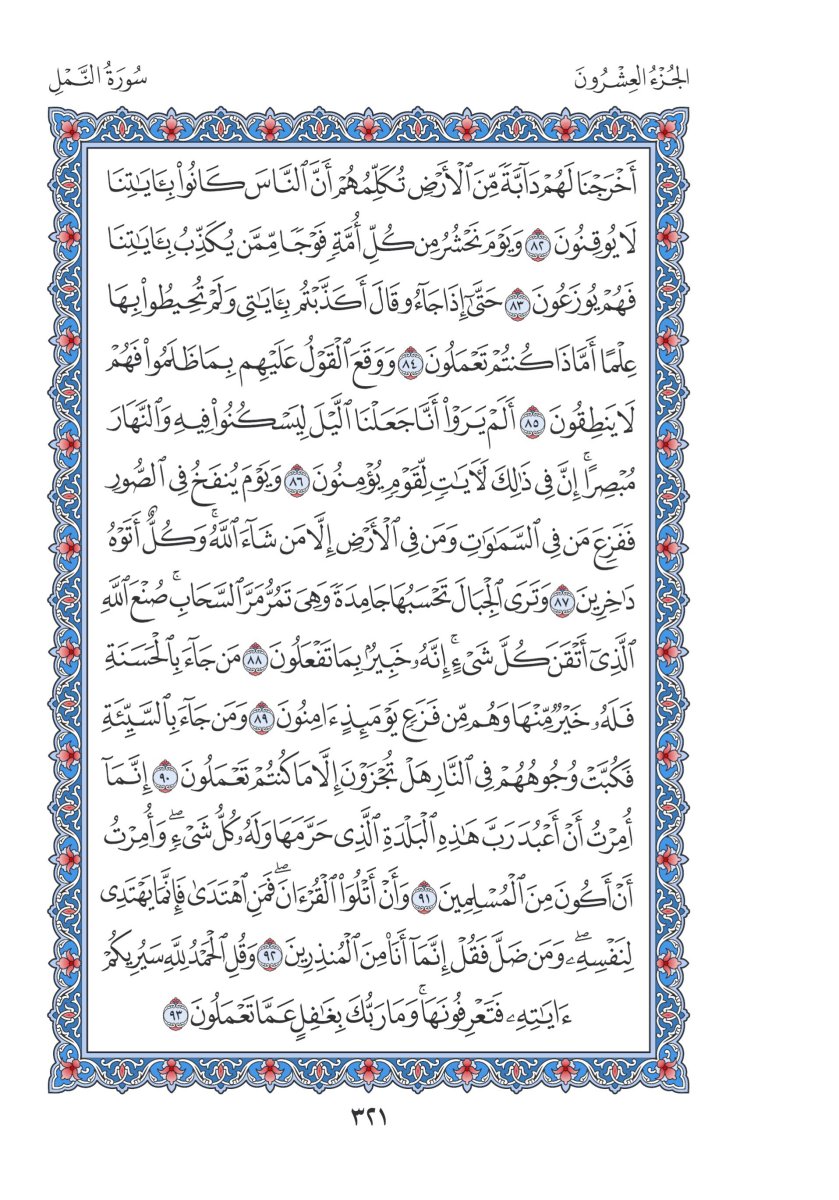 الجُزْءُ العِشْرُونَ
سُورَةُ النَّمْلِ
أَخْرَجْنَا لَهُمْ دَآبَّةً مِّنَ ٱلْأَرْضِ تُكَلِّمُهُمْ أَنَّ ٱلنَّاسَ كَانُوا۟ بِـَٔايَـٰتِنَا
لَا يُوقِنُونَ ٨٢ وَيَوْمَ نَحْشُرُ مِن كُلِّ أُمَّةٍ فَوْجًا مِّمَّن يُكَذِّبُ بِـَٔايَـٰتِنَا
فَهُمْ يُوزَعُونَ ٨٣ حَتَّىٰٓ إِذَا جَآءُو قَالَ أَكَذَّبْتُم بِـَٔايَـٰتِى وَلَمْ تُحِيطُوا۟ بِهَا
عِلْمًا أَمَّاذَا كُنتُمْ تَعْمَلُونَ ٨٤ وَوَقَعَ ٱلْقَوْلُ عَلَيْهِم بِمَا ظَلَمُوا۟ فَهُمْ
لَا يَنطِقُونَ ٨٥ أَلَمْ يَرَوْا۟ أَنَّا جَعَلْنَا ٱلَّيْلَ لِيَسْكُنُوا۟ فِيهِ وَٱلنَّهَارَ
مُبْصِرًا ۚ إِنَّ فِى ذَٰلِكَ لَـَٔايَـٰتٍ لِّقَوْمٍ يُؤْمِنُونَ ٨٦ وَيَوْمَ يُنفَخُ فِى ٱلصُّورِ
فَفَزِعَ مَن فِى ٱلسَّمَـٰوَٰتِ وَمَن فِى ٱلْأَرْضِ إِلَّا مَن شَآءَ ٱللَّهُ ۚ وَكُلٌّ أَتَوْهُ
دَٰخِرِينَ ٨٧ وَتَرَى ٱلْجِبَالَ تَحْسَبُهَا جَامِدَةً وَهِىَ تَمُرُّ مَرَّ ٱلسَّحَابِ ۚ صُنْعَ ٱللَّهِ
ٱلَّذِىٓ أَتْقَنَ كُلَّ شَىْءٍ ۚ إِنَّهُۥ خَبِيرٌۢ بِمَا تَفْعَلُونَ ٨٨ مَن جَآءَ بِٱلْحَسَنَةِ
فَلَهُۥ خَيْرٌ مِّنْهَا وَهُم مِّن فَزَعٍ يَوْمَئِذٍ ءَامِنُونَ ٨٩ وَمَن جَآءَ بِٱلسَّيِّئَةِ
فَكُبَّتْ وُجُوهُهُمْ فِى ٱلنَّارِ هَلْ تُجْزَوْنَ إِلَّا مَا كُنتُمْ تَعْمَلُونَ ٩٠ إِنَّمَآ
أُمِرْتُ أَنْ أَعْبُدَ رَبَّ هَـٰذِهِ ٱلْبَلْدَةِ ٱلَّذِى حَرَّمَهَا وَلَهُۥ كُلُّ شَىْءٍ ۖ وَأُمِرْتُ
أَنْ أَكُونَ مِنَ ٱلْمُسْلِمِينَ ٩١ وَأَنْ أَتْلُوَا۟ ٱلْقُرْءَانَ ۖ فَمَنِ ٱهْتَدَىٰ فَإِنَّمَا يَهْتَدِى
لِنَفْسِهِۦ ۖ وَمَن ضَلَّ فَقُلْ إِنَّمَآ أَنَا۠ مِنَ ٱلْمُنذِرِينَ ٩٢ وَقُلِ ٱلْحَمْدُ لِلَّهِ سَيُرِيكُمْ
ءَايَـٰتِهِۦ فَتَعْرِفُونَهَا ۚ وَمَا رَبُّكَ بِغَـٰفِلٍ عَمَّا تَعْمَلُونَ ٩٣
٣٢١